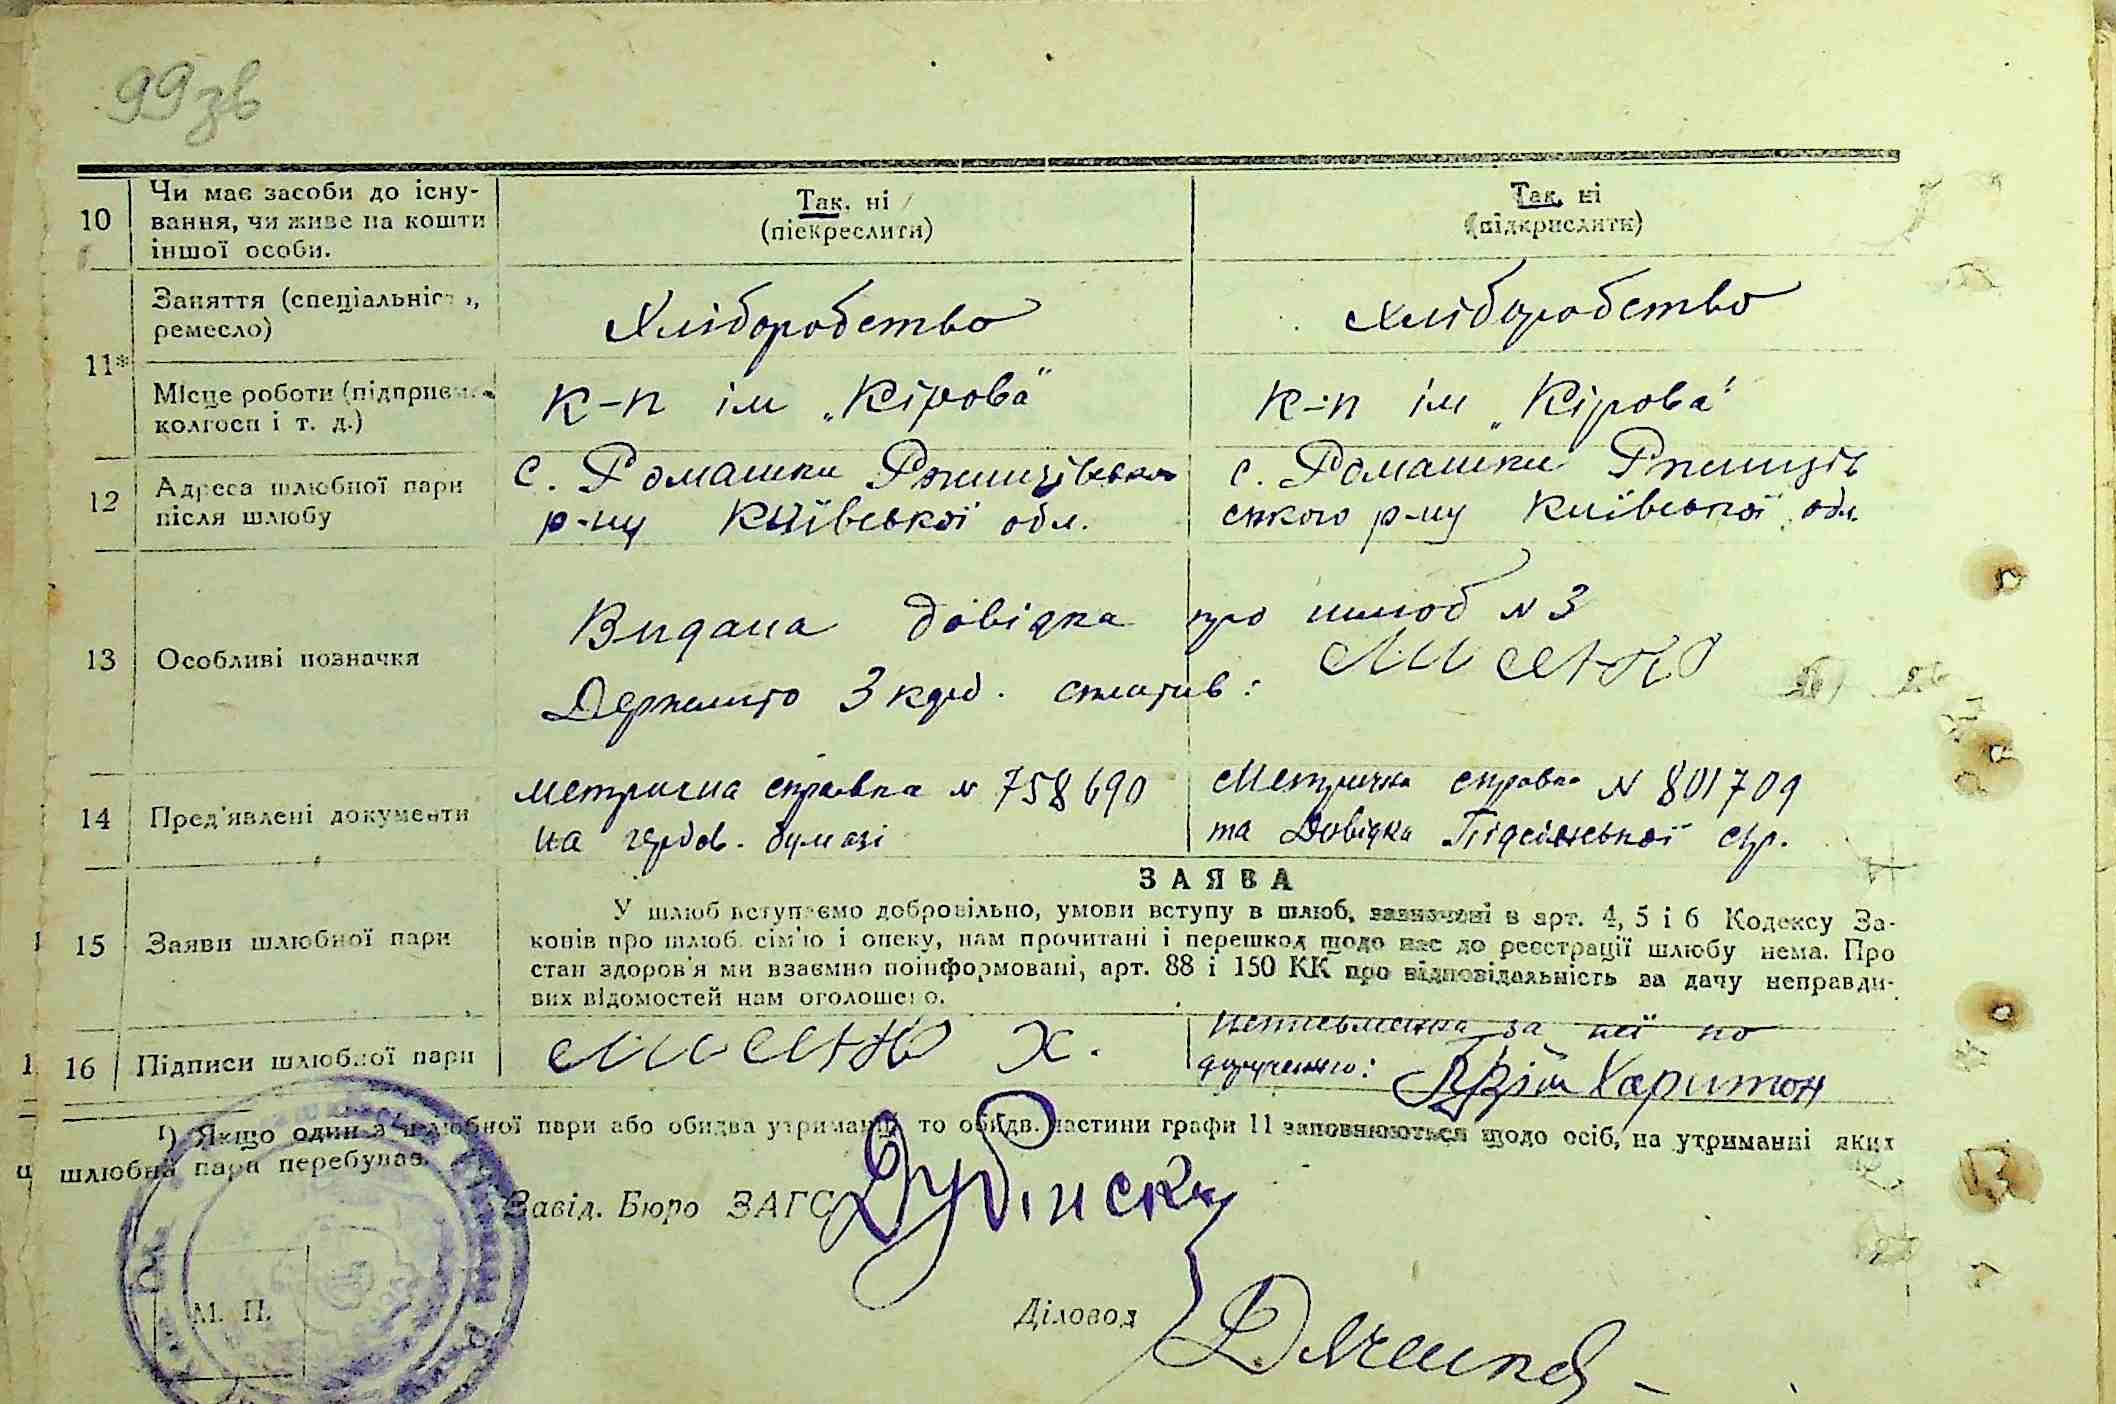 99 зв
10
Чи має засоби до існу-
вання, чи живе на кошти
іншої особи.
Так, ні
(піекреслити)
Так, ні
(підкрислити)
11*
Заняття (спеціальність,
ремесло)
Хліборобство
Хліборобство
Місце роботи (підприєм.
колгосп і т. д.)
к-п ім „Кірова"
к-п ім „Кірова"
12
Адреса шлюбної пари
після шлюбу
с. Ромашки Ржищівського
р-ну Київської обл.
с. Ромашки Ржищів
ського р-ну Київської обл.
13
Особливі позначки
Видана довідка про шлюб № 3
Держмито 3 крб. сплатив:
14
Пред'явлені документи
метрична справка № 758690
на гербов. бумазі
Метрична справка № 801709
та Довідка Підсінської с/р.
15
Заяви шлюбної пари
ЗАЯВА
У шлюб вступаємо добровільно, умови вступу в шлюб, зазначені в арт. 4, 5 і 6 Кодексу За-
конів про шлюб, сім'ю і опеку, нам прочитані і перешкод щодо нас до реєстрації шлюбу нема. Про
стан здоров'я ми взаємно поінформовані, арт. 88 і 150 КК про відповідальність за дачу неправди-
вих відомостей нам оголошено.
16
Підписи шлюбної пари
Х.
Неписьменна за неї по
дорученню: Харитон
¹) Якщо один з шлюбної пари або обидва утриманці, то обидв. частини графи 11 заповнюються щодо осіб, на утриманні яких
шлюбна пара перебуває.
Завід. Бюро ЗАГС Дубінськ
М. П.
Діловод